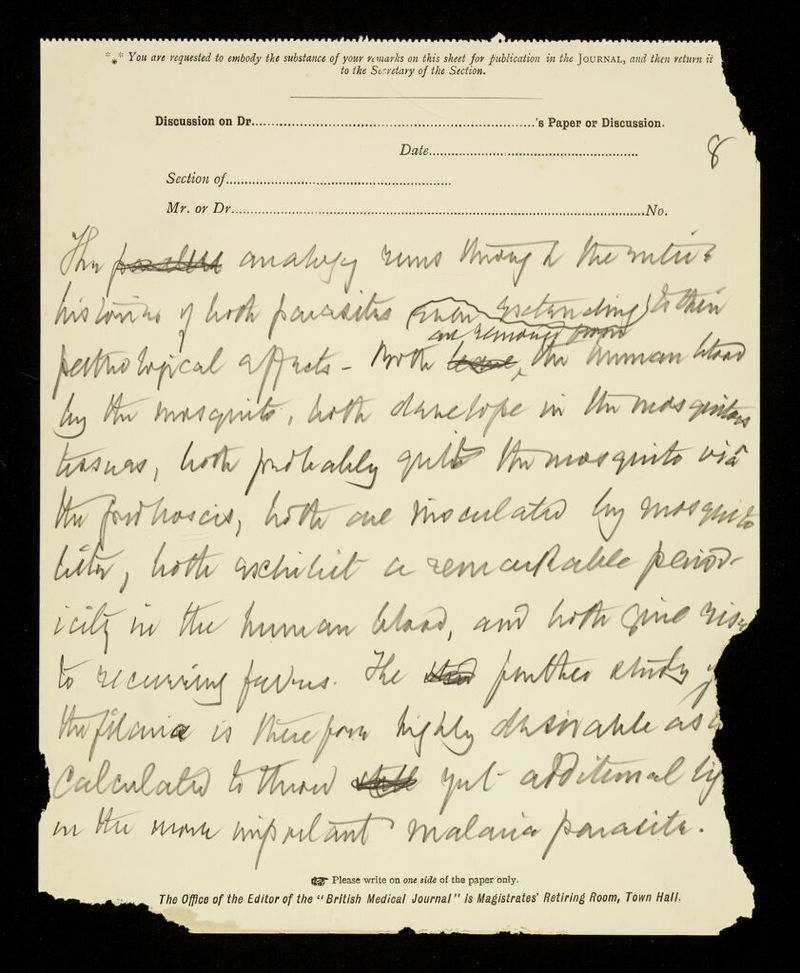 *** You are requested to embody the substance of your remarks on this sheet for publication in the JOURNAL, and then return it
to the Secretary of the Section.
Discussion on Dr.......'s Paper or Discussion.
Date.......
8
Section of.......
Mr. or Dr.......No.
The analogy runs through the entire
histories of both parasites even extending to their
are removed from
pathological effects - Both the human blood
by the mosquito, both develope in the mosquitoes
tissues, both probably quit the mosquito viâ
the proboscis, both are inoculated by mosquito
bite, both exhibit a remarkable period-
icity in the human blood, and both give rise
to recurring fevers. The further study of
the filaria is therefore highly desirable as
calculated to throw yet additional
on the more important malaria parasite.
☞ Please write on one side of the paper only.
The Office of the Editor of the "British Medical Journal" is Magistrates' Retiring Room, Town Hall.